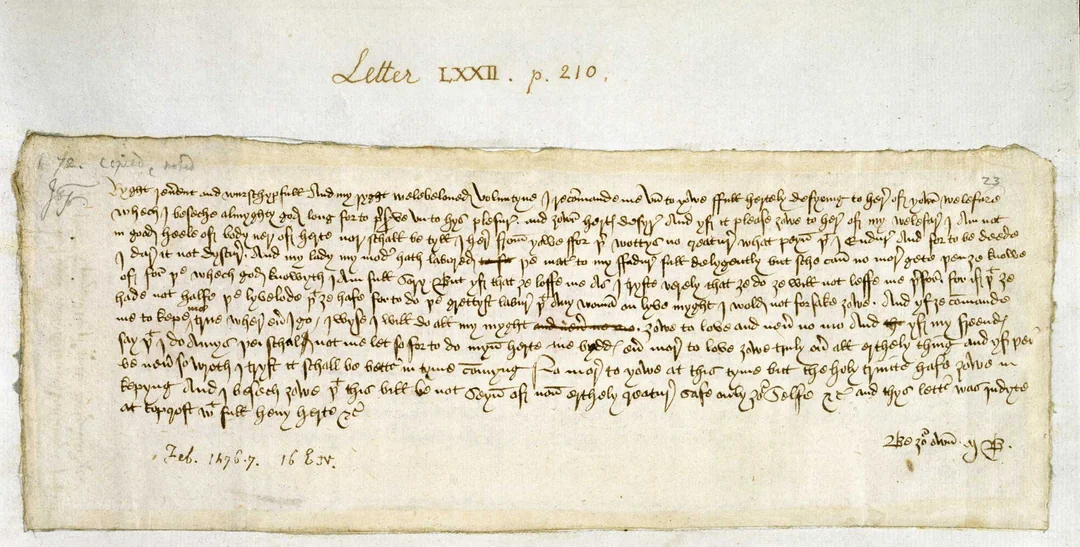 Letter LXXII. p. 210.
72. copied
23
Ryght reuerent and wurschypfull And my ryght welebeloued Voluntyne I recomande me vn to yowe ffull hertely desyring to here of yowr welefare
whech I beseche almyghty god long for to preserve vn to hys plesur and zowr hertys desyr And yf it please zowe to here of my welefar I Am not
in good heele of body ner of herte nor schall be tyll I her from yowe ffor þer wottys no creatur what peyn þat I Endur And for to be deede
I dur it not dyscur And my lady my moder hath labored þe mater to my ffadur full delygently but sche can no mor gete þen ze knowe
of for þe whech god knowyth I Am full Sory But yf that ze loffe me As I tryste verely that ze do ze will not leffe me þerfor for if þat ze
hade not halfe þe lyvelode þat ze hafe for to do þe grettyst labur þat Any woman on lyve myght I wold not forsake zowe And yf ze comande
me to kepe me true wher euer I go I wyse I will do all my myght zowe to love and neuer no mo And yf my freendys
say þat I do Amys þei schal not me let so for to do myn herte me byddys euer mor to love zowe truly ouer all erthely thing and yf þei
be neuer so wroth I tryst it schall be bettur in tyme comyng No mor to yowe at this tyme but the holy trinite hafe zowe in
kepyng And I besech zowe þat this bill be not Seyn of non erthely creatur Safe only zour Selfe &c and thys lettur was indyte
at topcroft wt full heuy herte &c
Be zour own M B.
Feb. 1476.7. 16 E. IV.